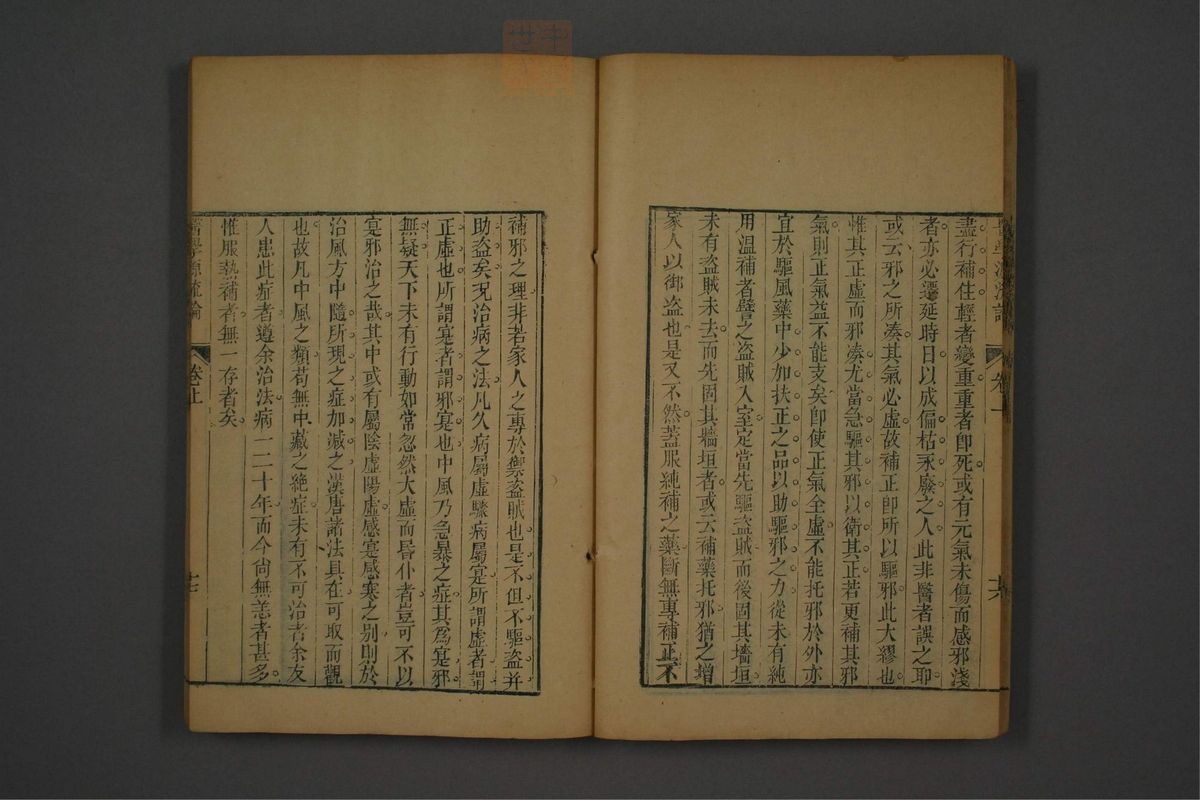 盡行補住輕者變重重者即死或有元氣未傷而感邪淺
者亦必遷延時日以成偏枯永廢之人此非醫者誤之耶
或云邪之所湊其氣必虛故補正即所以驅邪此大繆也
惟其正虛而邪湊尤當急驅其邪以衛其正若更補其邪
氣則正氣益不能支矣即使正氣全虛不能托邪於外亦
宜於驅風藥中少加扶正之品以助驅邪之力從未有純
用溫補者譬之盜賊入室定當先驅盜賊而後固其墻垣
未有盜賊未去而先固其牆垣者或云補藥托邪猶之增
家人以御盜也是又不然蓋服純補之藥斷無專補正不
補邪之理非若家人之專於禦盜賊也是不但不驅盜并
助盜矣況治病之法凡久病屬虛驟病屬寔所謂虛者謂
正虛也所謂寔者謂邪寔也中風乃急暴之症其爲寔邪
無疑天下未有行動如常忽然大虛而昏仆者豈可不以
寔邪治之哉其中或有屬陰虛陽虛感寔感寒之別則於
治風方中隨所現之症加減之漢唐諸法具在可取而觀
也故凡中風之類苟無中藏之絶症未有不可治者余友
人患此症者遵余治法病一二十年而今尚無恙者甚多
惟服熱補者無一存者矣
醫學源流論
卷上